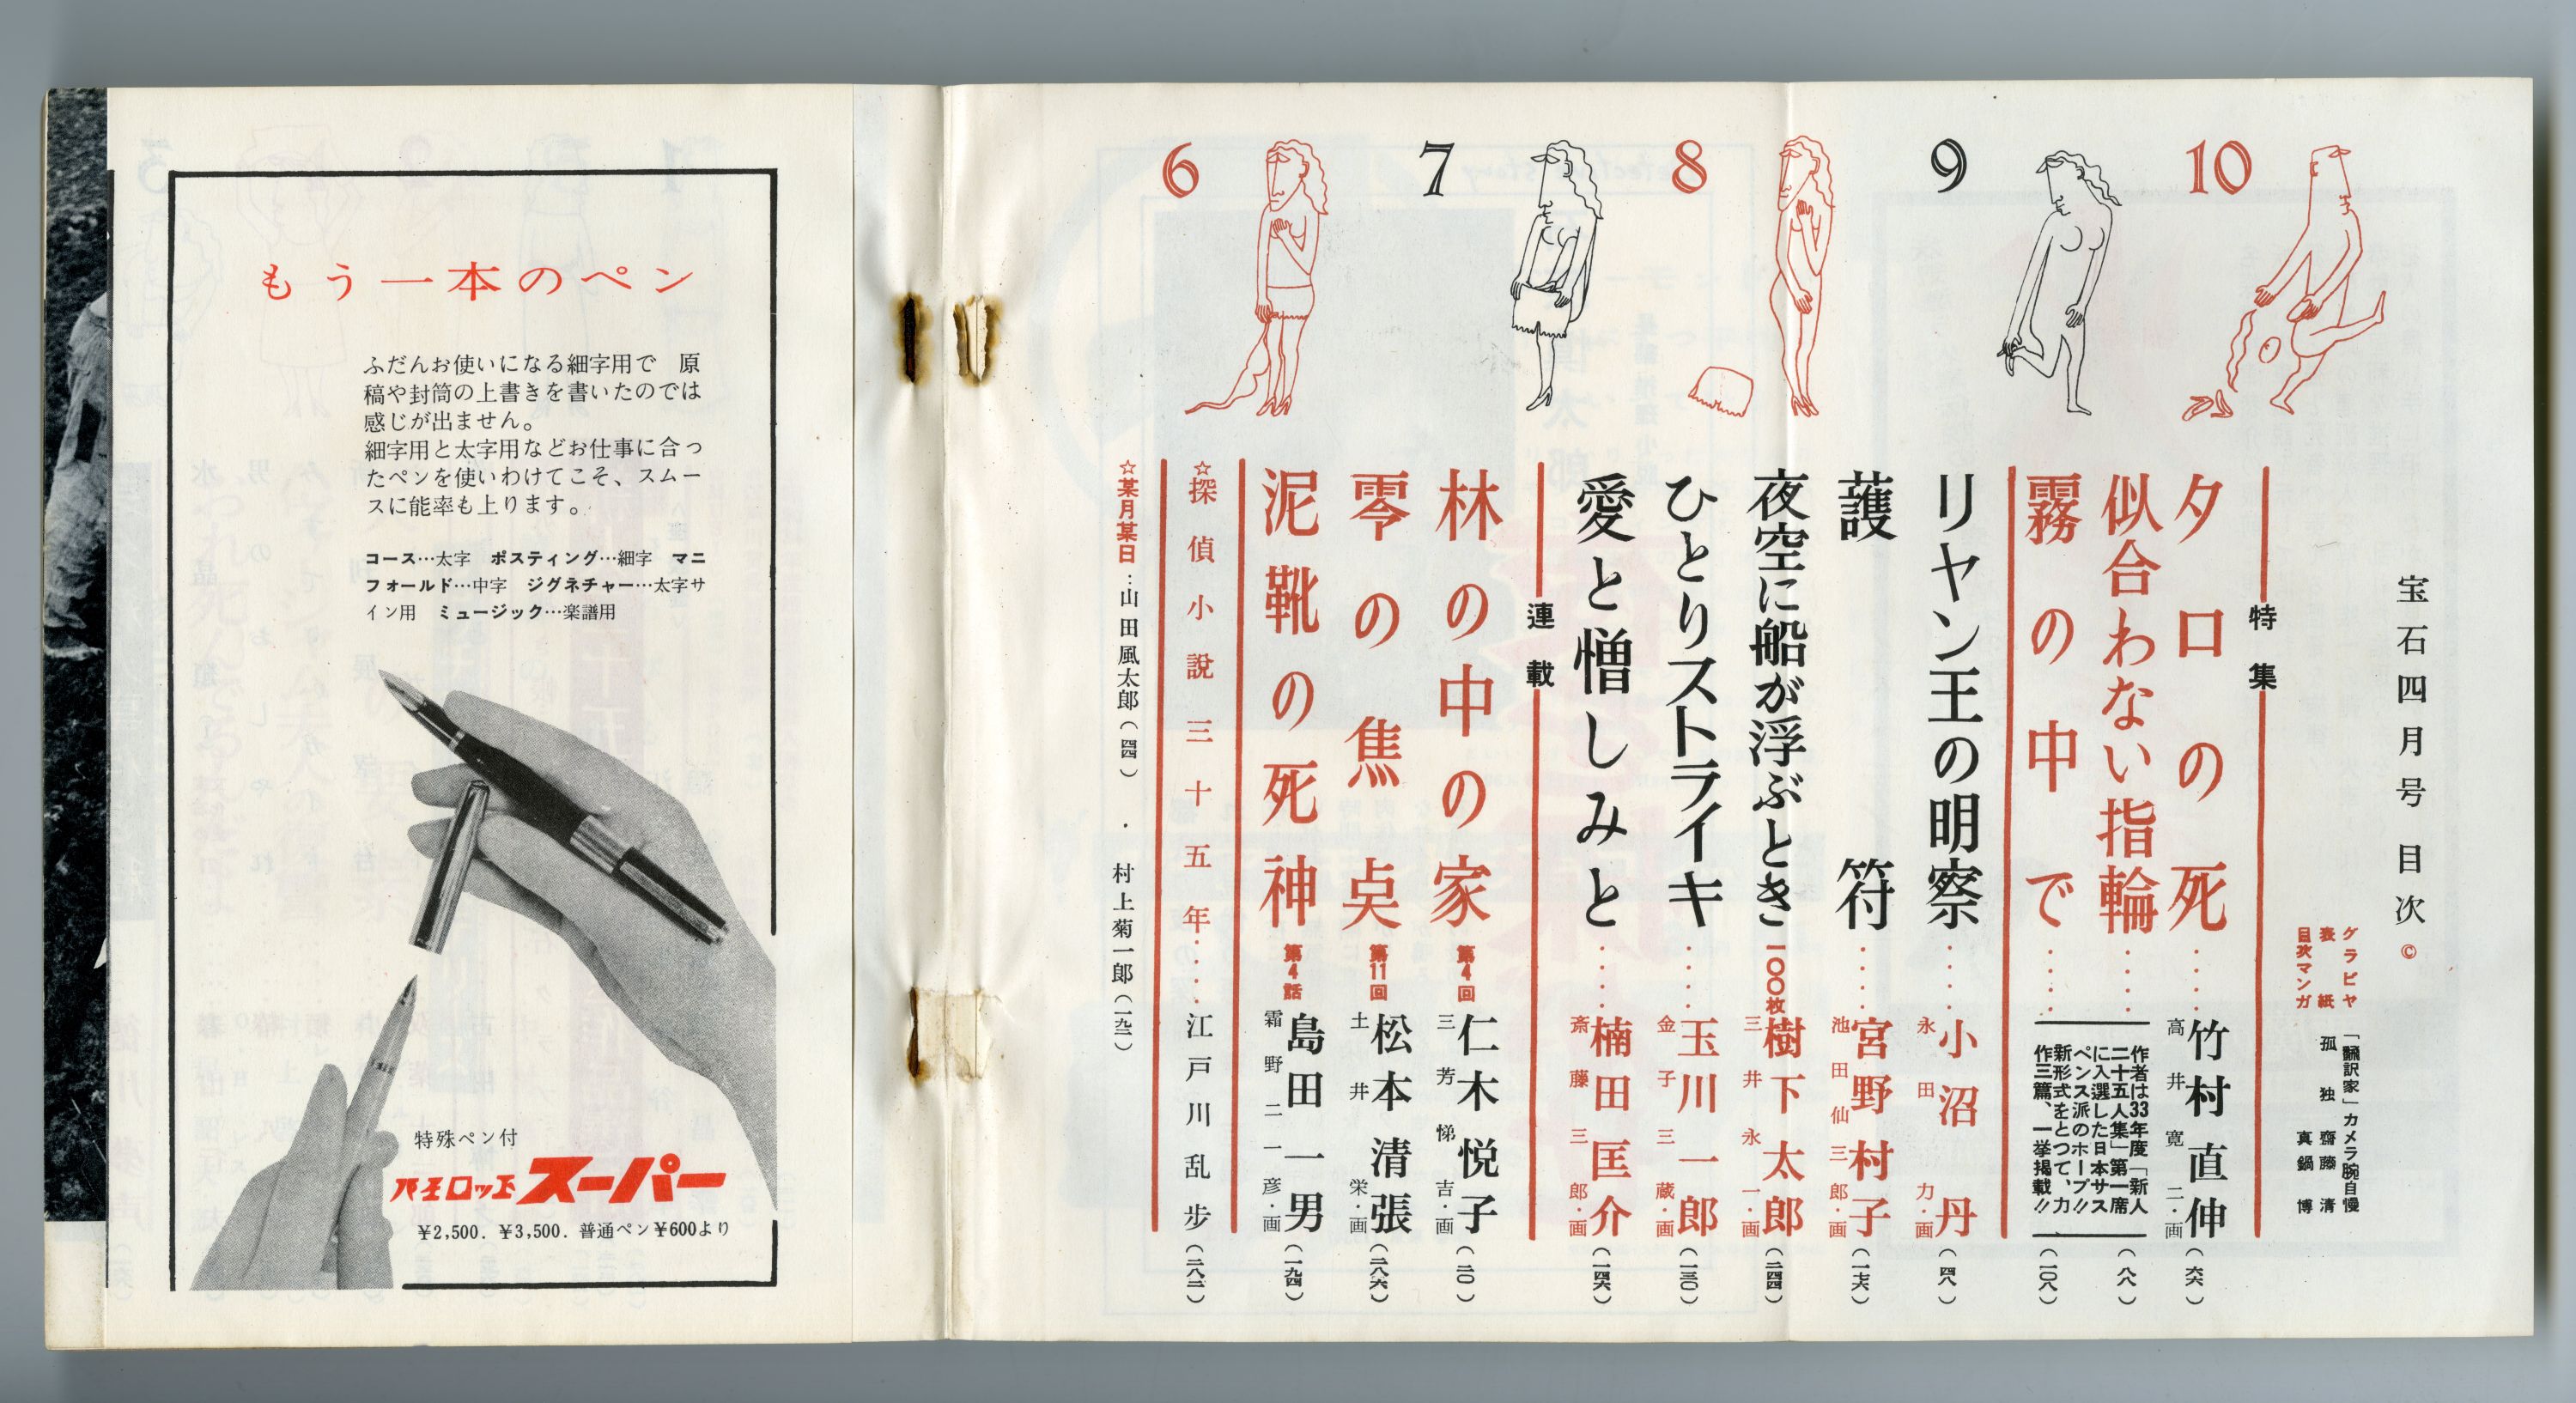 宝石四月号 目次 ©
グラビヤ 「翻訳家」カメラ腕自慢
表紙 孤独 齋藤清
目次マンガ 真鍋博
10
9
8
7
6
特集
タロの死……竹村直伸(六六)
高井寛二・画
似合わない指輪……(八八)
霧の中で……(一〇八)
作者は33年度「新人
二十五人集」第一席
に入選した日本サス
ペンス派のホープ!!
新形式をとつて、力
作三篇、一挙掲載!!
リヤン王の明察……小沼丹(四八)
永田力・画
護符……宮野村子(一七六)
池田仙三郎・画
夜空に船が浮ぶとき 一〇〇枚 樹下太郎(二四四)
三井永一・画
ひとりストライキ……玉川一郎(一三〇)
金子三蔵・画
愛と憎しみと……楠田匡介(一四六)
斎藤三郎・画
連載
林の中の家 第4回 仁木悦子(二〇)
三芳悌吉・画
零の焦点 第11回 松本清張(二八六)
土井栄・画
泥靴の死神 第4話 島田一男(一九四)
霜野二一彦・画
☆探偵小説三十五年……江戸川乱歩(二八二)
☆某月某日:山田風太郎(四四)・村上菊一郎(一九二)
もう一本のペン
ふだんお使いになる細字用で 原
稿や封筒の上書きを書いたのでは
感じが出ません。
細字用と太字用などお仕事に合っ
たペンを使いわけてこそ、スムー
スに能率も上ります。
コース…太字 ポスティング…細字 マニ
フォールド…中字 ジグネチャー…太字サ
イン用 ミュージック…楽譜用
特殊ペン付
パイロット スーパー
¥2,500. ¥3,500. 普通ペン¥600より